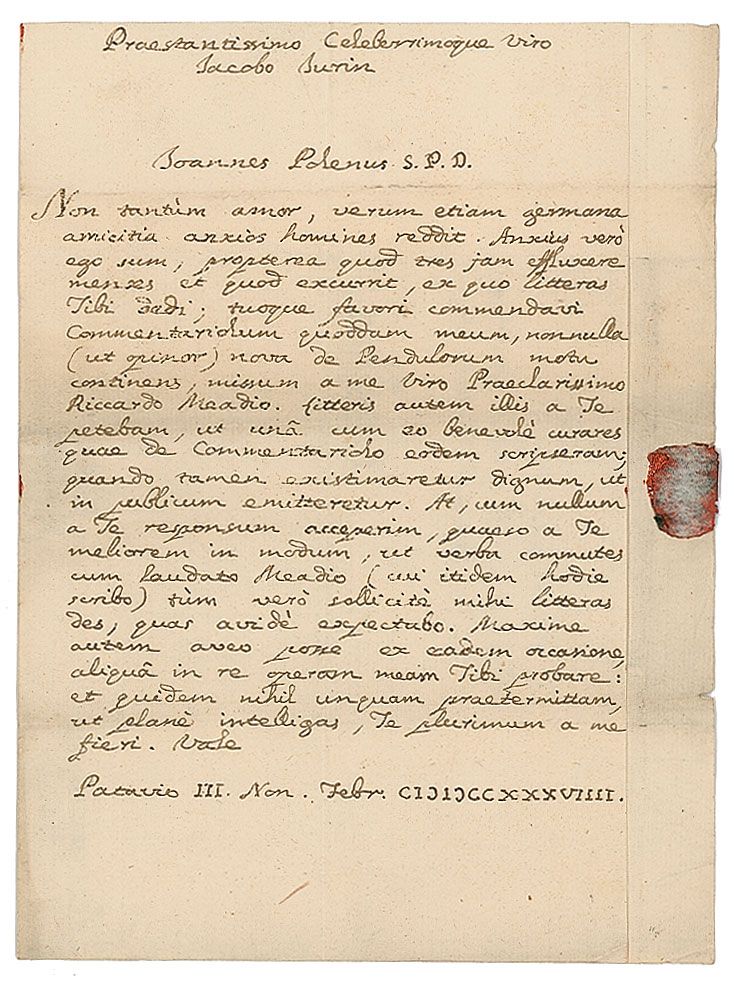 Praestantissimo Celeberrimoque Viro
Jacobo Jurin
Joannes Polenus S. P. D.
Non tantùm amor, verum etiam germana
amicitia anxios homines reddit. Anxius verò
ego sum, propterea quod tres jam effluxere
menses et quod excurrit, ex quo litteras
Tibi dedi; tuoque favori commendavi
Commentariolum quoddam meum, nonnulla
(ut opinor) nova de Pendulorum motu
continens, missum a me Viro Praeclarissimo
Riccardo Meadio. Litteris autem illis a Te
petebam, ut unâ cum eo benevolè curares
quae de Commentariolo eodem scripseram;
quando tamen existimaretur dignum, ut
in publicum emitteretur. At, cum nullum
a Te responsum acceperim, quaeso a Te
meliorem in modum, ut verba commutes
cum laudato Meadio (cui itidem hodie
scribo) tùm verò sollicitè mihi litteras
des, quas avidè expectabo. Maxime
autem aveo posse ex eadem occasione,
aliquâ in re operam meam Tibi probare:
et quidem nihil unquam praetermittam,
ut planè intelligas, Te plurimum a me
fieri. Vale
Patavio III. Non. Febr. CIƆIƆCCXXXVIIII.